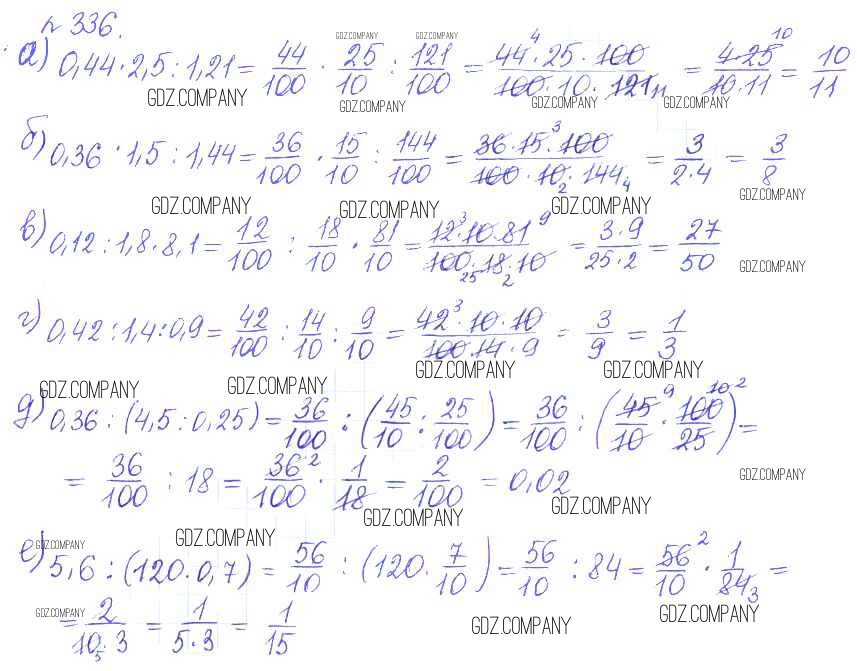 № 336.
а) 0,44 · 2,5 : 1,21 = 44/100 · 25/10 : 121/100 = 44 4 · 25 · 100 / 100 · 10 · 121 11 = 4 · 25 10 / 10 · 11 = 10/11
GDZ.COMPANY GDZ.COMPANY
GDZ.COMPANY GDZ.COMPANY GDZ.COMPANY GDZ.COMPANY
б) 0,36 · 1,5 : 1,44 = 36/100 · 15/10 : 144/100 = 36 · 15 3 · 100 / 100 · 10 2 · 144 4 = 3 / 2 · 4 = 3/8
GDZ.COMPANY GDZ.COMPANY GDZ.COMPANY GDZ.COMPANY
в) 0,12 : 1,8 · 8,1 = 12/100 : 18/10 · 81/10 = 12 3 · 10 · 81 9 / 100 25 · 18 2 · 10 = 3 · 9 / 25 · 2 = 27/50
GDZ.COMPANY
г) 0,42 : 1,4 : 0,9 = 42/100 : 14/10 : 9/10 = 42 3 · 10 · 10 / 100 · 14 · 9 = 3/9 = 1/3
GDZ.COMPANY GDZ.COMPANY GDZ.COMPANY GDZ.COMPANY
д) 0,36 : (4,5 : 0,25) = 36/100 : (45/10 : 25/100) = 36/100 : (45 9 / 10 · 100 10 2 / 25) =
= 36/100 : 18 = 36 2 / 100 · 1/18 = 2/100 = 0,02
GDZ.COMPANY
GDZ.COMPANY GDZ.COMPANY GDZ.COMPANY
е) 5,6 : (120 · 0,7) = 56/10 : (120 · 7/10) = 56/10 : 84 = 56 2 / 10 · 1 / 84 3 =
GDZ.COMPANY
= 2 / 10 5 · 3 = 1 / 5 · 3 = 1/15
GDZ.COMPANY GDZ.COMPANY GDZ.COMPANY